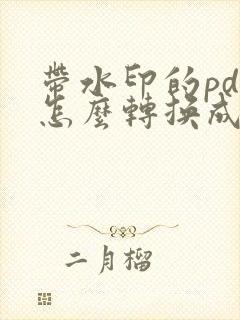 帶水印的pd
怎麼轉換成
二月榴